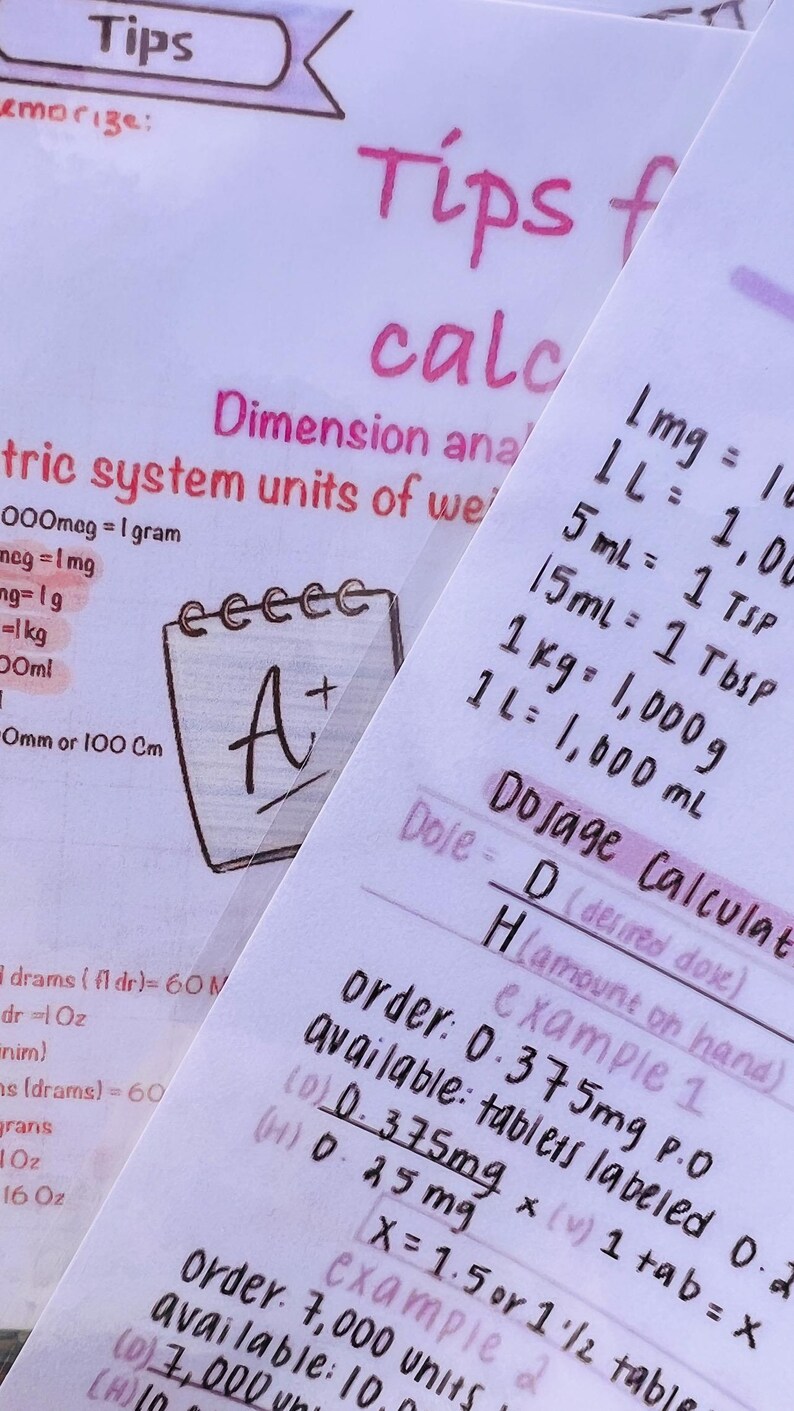 Tips
emorize:
Tips f
calc
Dimension anal
tric system units of wei
000mcg = 1 gram
mcg = 1 mg
mg = 1 g
= 1 kg
00ml
0mm or 100 Cm
A+
drams ( fl dr) = 60 M
dr = 1 Oz
inim)
ms (drams) = 60
grans
1 Oz
16 Oz
1 mg = 10
1 L = 1,00
5 mL = 1 TSP
15 mL = 1 TbSP
1 Kg = 1,000 g
1 L = 1,000 mL
Dosage Calculat
Dose = D (desired dose)
H (amount on hand)
example 1
order: 0.375mg P.O
available: tablets labeled 0.2
(D) 0.375mg
(H) 0.25 mg x (V) 1 tab = X
X = 1.5 or 1 1/2 table
example 2
order: 7,000 units
available: 10,0
(D) 7,000 un
(H) 10